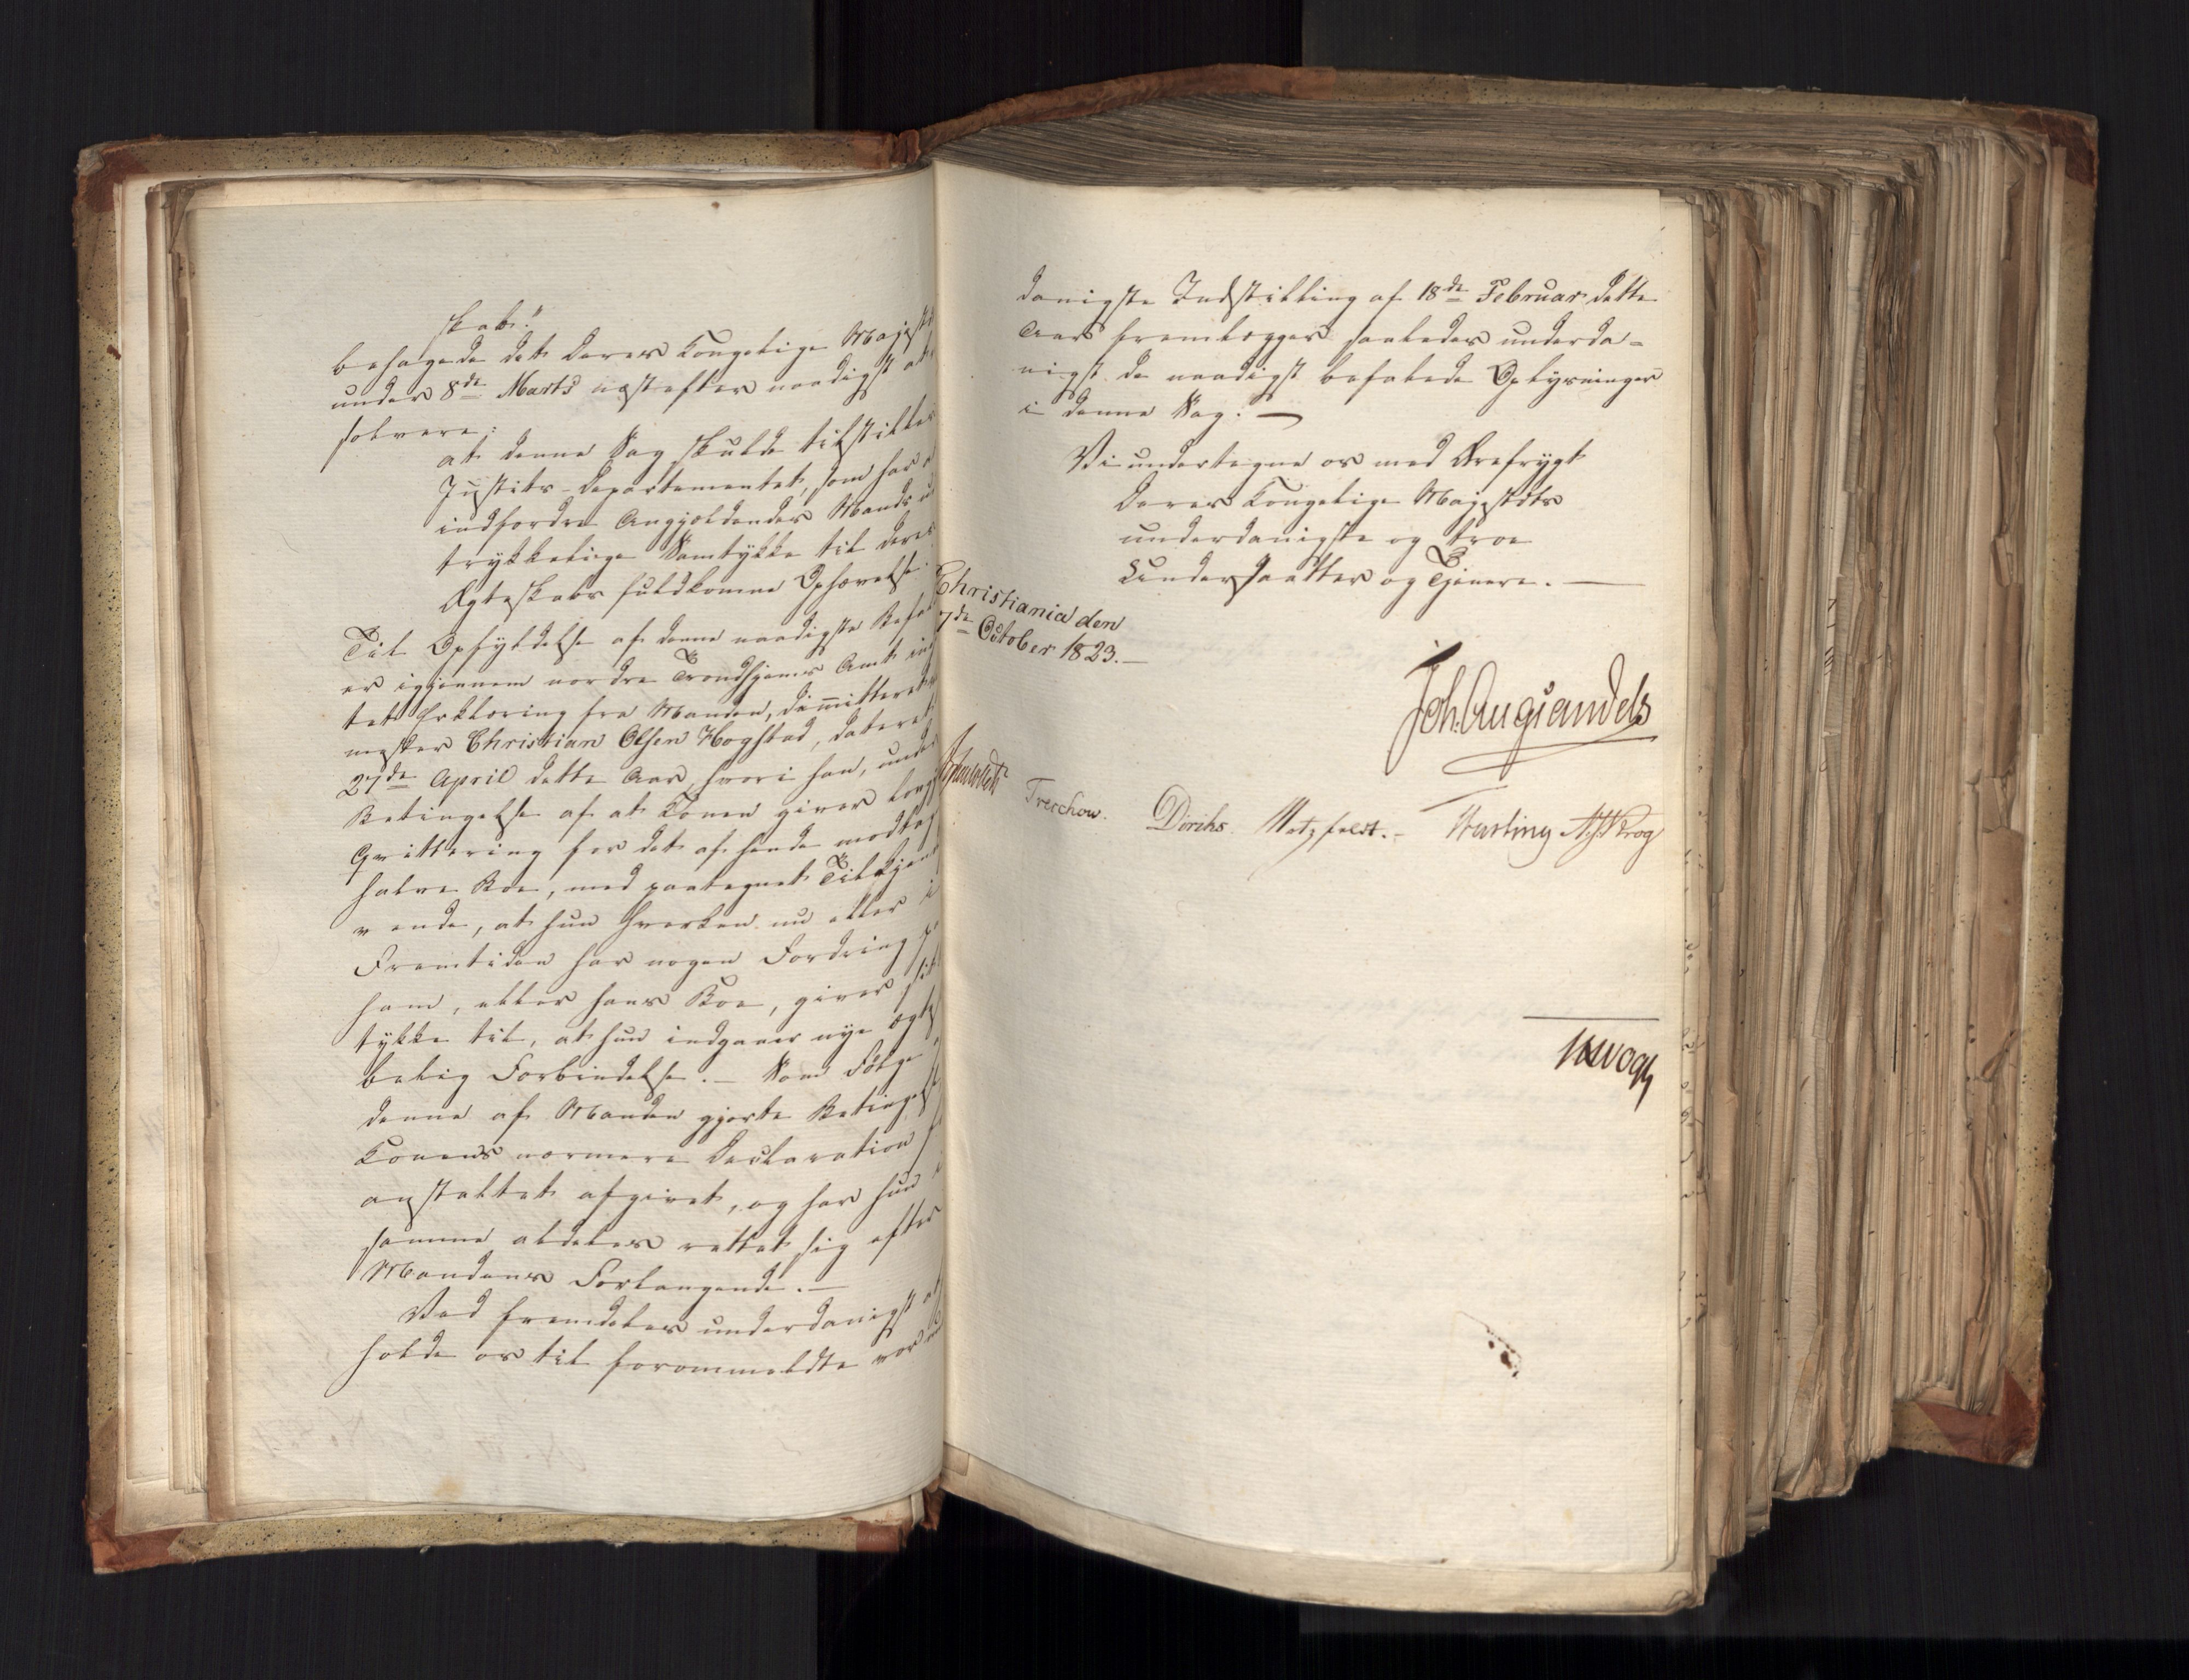 skab."
behagede det Deres Kongelige Majestæt
under 8de Marts næstefter naadigst at
solvere:
at denne Sag skulde tilstilles
Justits-Departementet, som har
indfordre Angjeldendes Mands ud
trykkelige Samtykke til deres
Ægteskabs fuldkomne Ophævelse.
Til Opfyldelse af denne naadigste Befa
er igjennem nordre Trondhjems Amt ind
tet Erklæring fra Manden, dimitteret
mester Christian Olsen Hogstad, dateret
27de April dette Aar, hvori han, under
Betingelse af at Konen giver
Qvittering for det af hende modtag
halve Boe, med paategnet Tilkjen
v ende, at hun hverken nu eller i
Fremtiden har nogen Fordring p
ham, eller hans Boe, giver sit
tykke til, at hun indgaaer nye ægte
belig Forbindelse. — Som Følge
denne af Manden gjorte Betingelse
Konens nærmere Declaration
anstaltet afgivet, og har hun
samme aldeles rettet sig efter
Mandens Forlangende. —
Ved fremdeles underdanigst at
holde os til forommeldte vor
danigste Indstilling af 18de Februar dette
Aar fremlægges saaledes underda-
nigst de naadigst befalede Oplysninger
i denne Sag. —
Vi undertegne os med Ærefrygt
Deres Kongelige Majestæts
underdanigste og troe
Undersaatter og Tjenere. —
Christiania den
7de October 1823. —
Joh. Aug Sandels
Sommerhielm
Treschow. Diriks. Motzfeldt. — Fasting Krog
Vogt